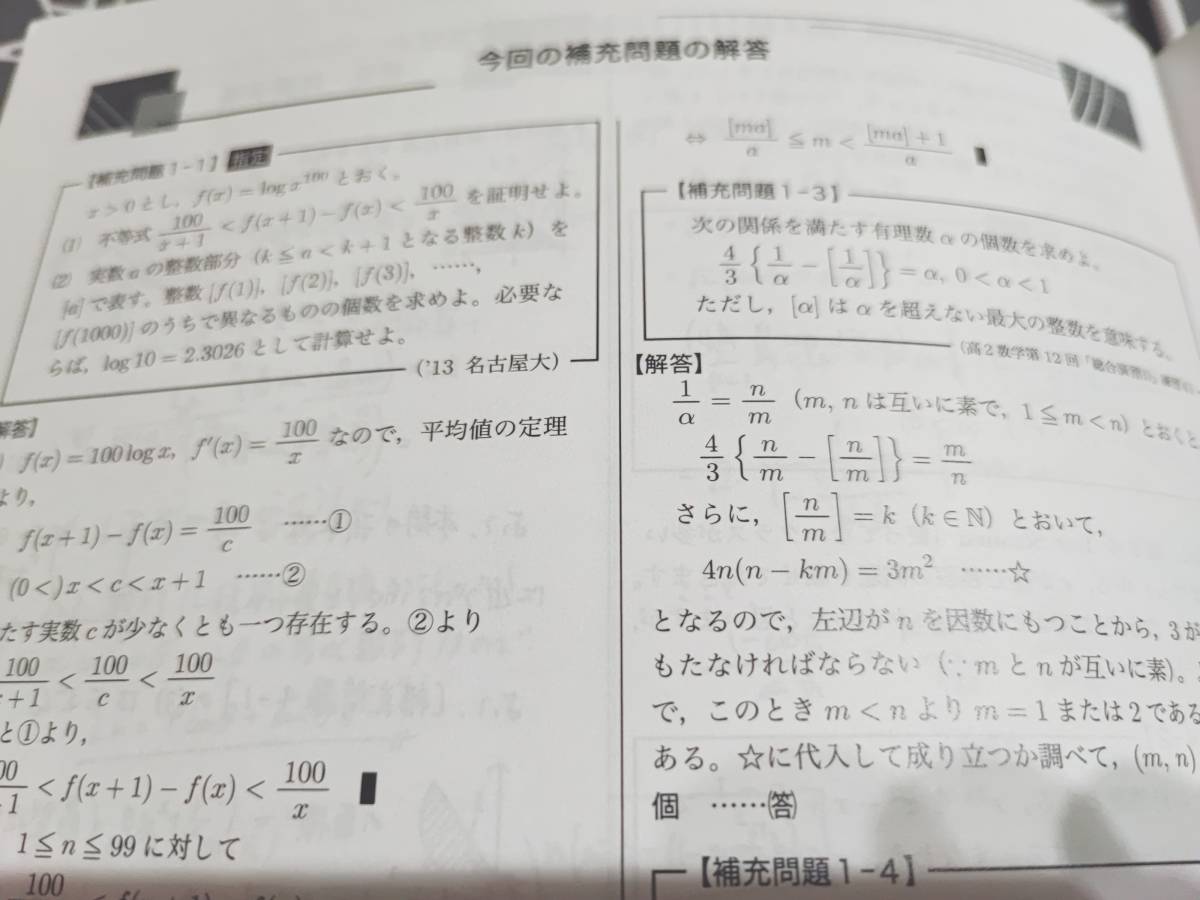 今回の補充問題の解答
【補充問題1-1】 指定
x>0とし，f(x)=log x^100 とおく。
(1) 不等式 100/(x+1) < f(x+1)-f(x) < 100/x を証明せよ。
(2) 実数 a の整数部分（k≦n<k+1 となる整数 k）を
[a] で表す。整数 [f(1)]，[f(2)]，[f(3)]，……，
[f(1000)] のうちで異なるものの個数を求めよ。必要な
らば，log10=2.3026 として計算せよ。
('13 名古屋大)
解答】
) f(x)=100 log x，f'(x)=100/x なので，平均値の定理
より，
f(x+1)-f(x)=100/c ……①
(0<)x<c<x+1 ……②
たす実数 c が少なくとも一つ存在する。②より
100/(x+1) < 100/c < 100/x
と①より，
00/+1 < f(x+1)-f(x) < 100/x ▮
1≦n≦99 に対して
100
⇔ [mα]/α ≦ m < ([mα]+1)/α ▮
【補充問題1-3】
次の関係を満たす有理数 α の個数を求めよ。
4/3{1/α-[1/α]}=α, 0<α<1
ただし，[α] は α を超えない最大の整数を意味する。
(高2数学第12回「総合演習
【解答】
1/α=n/m （m, n は互いに素で，1≦m<n）とおくと
4/3{n/m-[n/m]}=m/n
さらに，[n/m]=k（k∈ℕ）とおいて，
4n(n-km)=3m² ……☆
となるので，左辺が n を因数にもつことから，3が
もたなければならない（∵ m と n が互いに素）。
で，このとき m<n より m=1 または 2 である
ある。☆に代入して成り立つか調べて，(m, n)
個 ……(答)
【補充問題1-4】